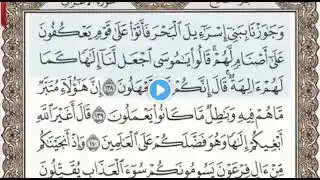 وَجَٰوَزْنَا بِبَنِىٓ إِسْرَٰٓءِيلَ ٱلْبَحْرَ فَأَتَوْا۟ عَلَىٰ قَوْمٍ يَعْكُفُونَ
عَلَىٰٓ أَصْنَامٍ لَّهُمْ ۚ قَالُوا۟ يَٰمُوسَى ٱجْعَل لَّنَآ إِلَٰهًا كَمَا
لَهُمْ ءَالِهَةٌ ۚ قَالَ إِنَّكُمْ قَوْمٌ تَجْهَلُونَ ١٣٨ إِنَّ هَٰٓؤُلَآءِ مُتَبَّرٌ
مَّا هُمْ فِيهِ وَبَٰطِلٌ مَّا كَانُوا۟ يَعْمَلُونَ ١٣٩ قَالَ أَغَيْرَ ٱللَّهِ
أَبْغِيكُمْ إِلَٰهًا وَهُوَ فَضَّلَكُمْ عَلَى ٱلْعَٰلَمِينَ ١٤٠ وَإِذْ أَنجَيْنَٰكُم
مِّنْ ءَالِ فِرْعَوْنَ يَسُومُونَكُمْ سُوٓءَ ٱلْعَذَابِ ۖ يُقَتِّلُونَ